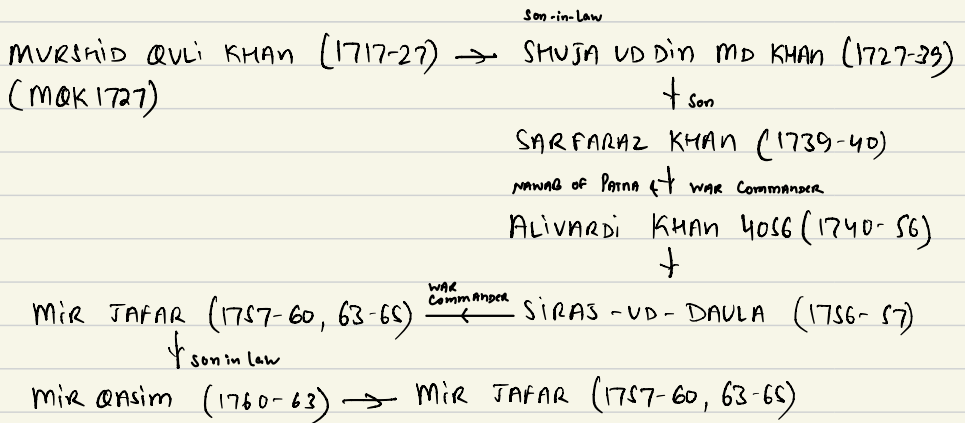 son-in-law
MURSHID QULI KHAN (1717-27) → SHUJA UD DIN MD KHAN (1727-39)
(MQK 1727)
↓ son
SARFARAZ KHAN (1739-40)
NAWAB OF PATNA & ↓ WAR COMMANDER
ALIVARDI KHAN 4056 (1740-56)
↓
WAR COMMANDER
MIR JAFAR (1757-60, 63-65) ← SIRAJ-UD-DAULA (1756-57)
↓ son in law
MIR QASIM (1760-63) → MIR JAFAR (1757-60, 63-65)